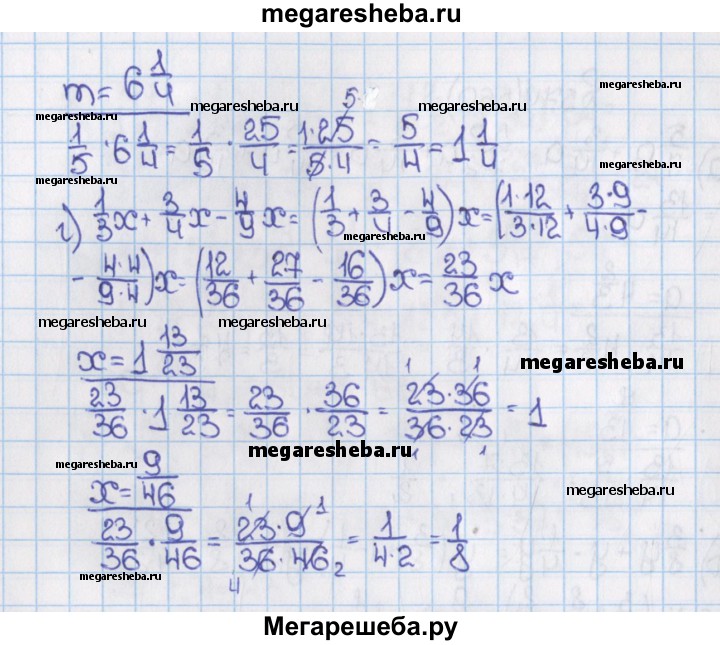 megaresheba.ru
m = 6 1/4
megaresheba.ru megaresheba.ru megaresheba.ru
1/5 · 6 1/4 = 1/5 · 25/4 = 1·25/5·4 = 5/4 = 1 1/4
5
megaresheba.ru
г) 1/3 x + 3/4 x - 4/9 x = (1/3 + 3/4 - 4/9) x = (1·12/3·12 + 3·9/4·9 -
megaresheba.ru megaresheba.ru
- 4·4/9·4) x = (12/36 + 27/36 - 16/36) x = 23/36 x
megaresheba.ru megaresheba.ru
x = 1 13/23
megaresheba.ru
23/36 · 1 13/23 = 23/36 · 36/23 = 23·36/36·23 = 1
1 1
1 1
megaresheba.ru
megaresheba.ru
x = 9/46
megaresheba.ru
23/36 · 9/46 = 23·9/36·46 = 1/4·2 = 1/8
1 1
4 2
megaresheba.ru
Мегарешеба.ру